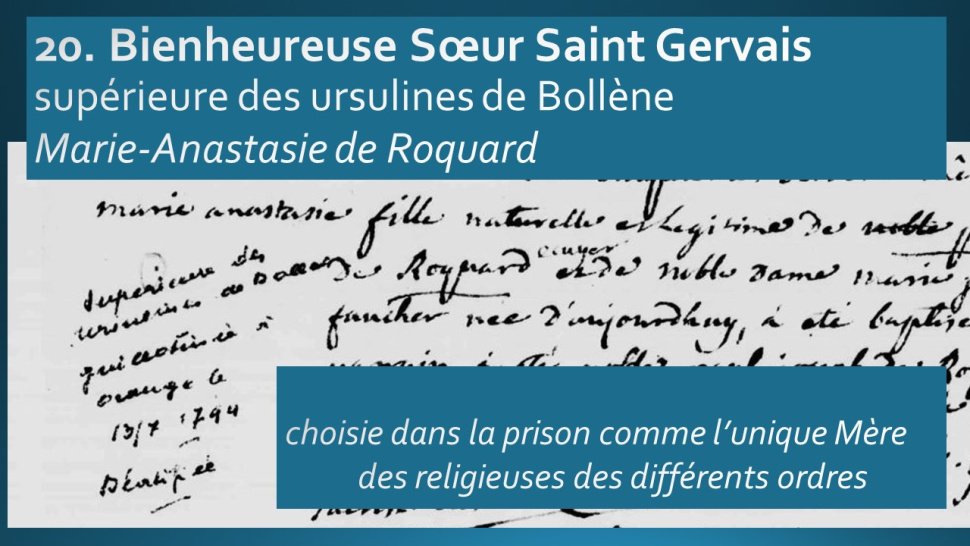 20. Bienheureuse Sœur Saint Gervais
supérieure des ursulines de Bollène
Marie-Anastasie de Roquard
marie anastasie fille naturelle et Legitime de noble
de Roquard ecuyer et de noble Dame marie
faucher nee d'aujourdhuy, a été baptisé
Supérieure des
ursulines de Bollène
guillotinée à
orange le
13/7 1794
Béatifiée
choisie dans la prison comme l'unique Mère
des religieuses des différents ordres